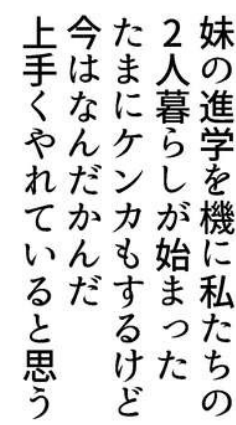 妹の進学を機に私たちの
2人暮らしが始まった
たまにケンカもするけど
今はなんだかんだ
上手くやれていると思う